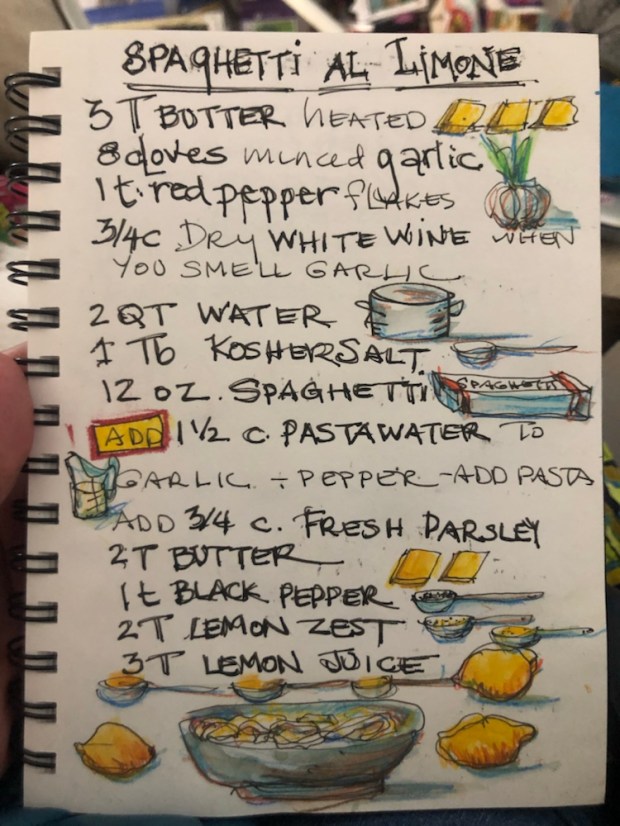 SPAGHETTI AL LIMONE
3 T BUTTER HEATED
8 cloves minced garlic
1 t. red pepper FLAKES
3/4 C DRY WHITE WINE WHEN
YOU SMELL GARLIC
2 QT WATER
1 Tb KOSHER SALT
12 OZ. SPAGHETTI
SPAGHETTI
ADD 1 1/2 C. PASTA WATER TO
GARLIC + PEPPER - ADD PASTA
ADD 3/4 C. FRESH PARSLEY
2T BUTTER
1t BLACK PEPPER
2T LEMON ZEST
3T LEMON JUICE